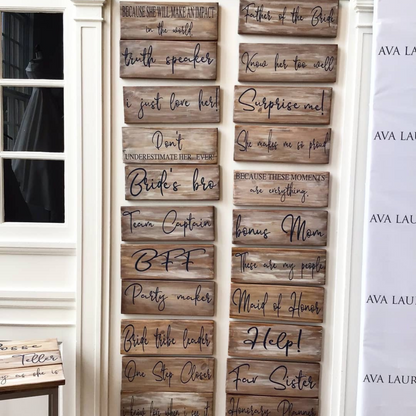 BECAUSE SHE WILL MAKE AN IMPACT
in the world
truth speaker
i just love her!
Don't
UNDERESTIMATE HER. EVER
Bride's bro
Team Captain
BFF
Party maker
Bride tribe leader
One Step Closer
Father of the Bride
Know her too well
Surprise me!
She makes me so proud
BECAUSE THESE MOMENTS
are everything.
bonus Mom
These are my people
Maid of Honor
Help!
Fav Sister
Honorary Planner
Teller
as she is
AVA LAU
AVA LAUR
AVA LAU
AVA LAUR
AVA LAUR